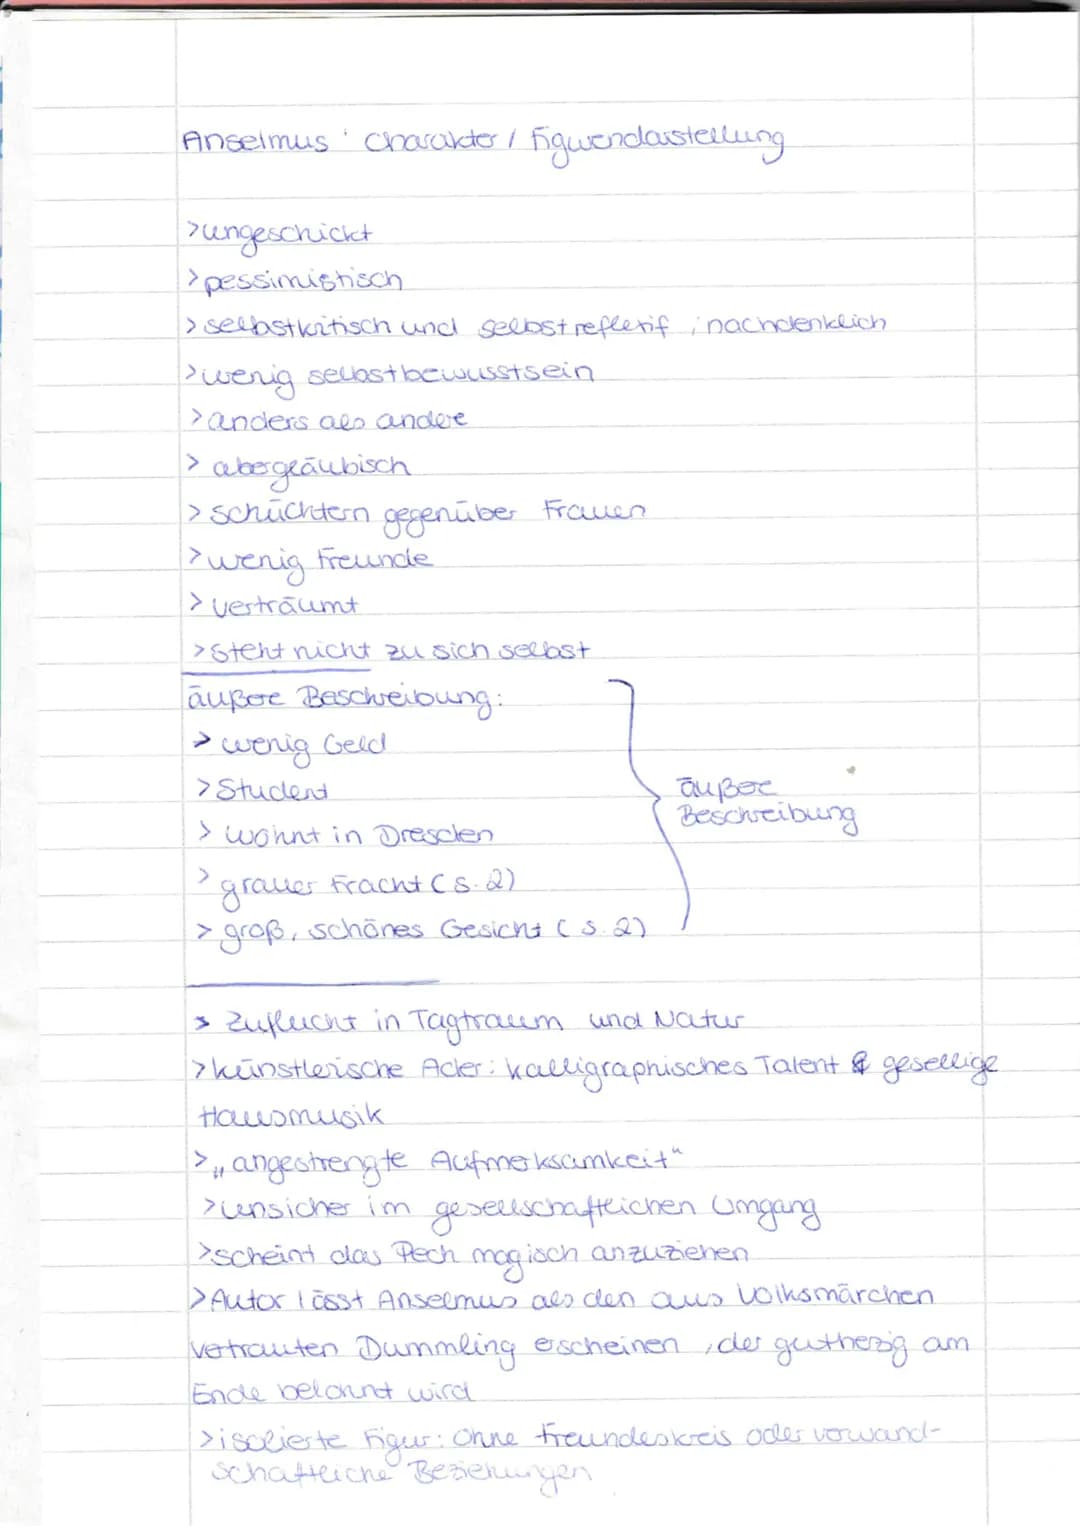 Anselmus: Charakter / Figurendarstellung
> ungeschickt
> pessimistisch
> selbstkritisch und selbstreflerif, nachdenklich
> wenig selbstbewusstsein
> anders als andere
> abergläubisch
> schüchtern gegenüber Frauen
> wenig Freunde
> verträumt
> steht nicht zu sich selbst
äußere Beschreibung:
> wenig Geld
> Student
> wohnt in Dresden
> grauer Fracht (s. 2)
> groß, schönes Gesicht (s. 2)
äußere
Beschreibung
> Zuflucht in Tagtraum und Natur
> künstlerische Ader: kalligraphisches Talent & gesellige
Hausmusik
> „angestrengte Aufmerksamkeit"
> unsicher im gesellschaftlichen Umgang
> scheint das Pech magisch anzuziehen
> Autor lässt Anselmus als den aus Volksmärchen
vertrauten Dummling erscheinen, der gutherzig am
Ende belohnt wird
> isolierte Figur: Ohne Freundeskreis oder verwand-
schaftliche Beziehungen